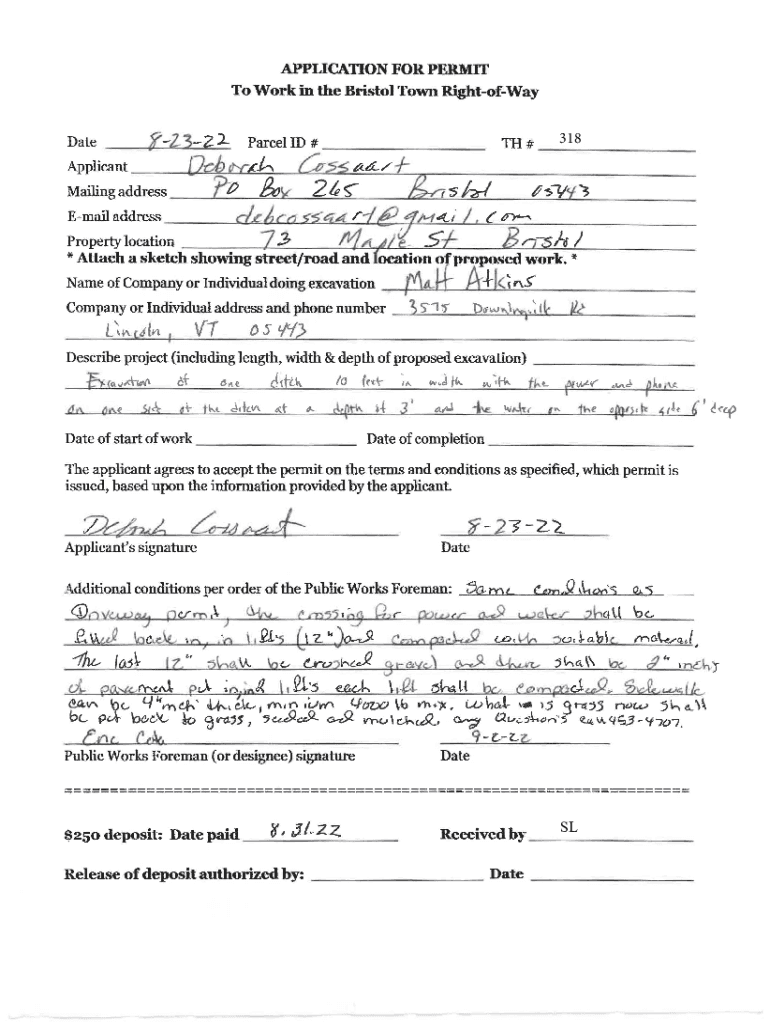 APPLICATION FOR PERMIT
To Work in the Bristol Town Right-of-Way
Date 8-23-22 Parcel ID # TH # 318
Applicant Deborah Cossaart
Mailing address PO Box 265 Bristol 05443
E-mail address debcossaart@gmail.com
Property location 73 Maple St Bristol
* Attach a sketch showing street/road and location of proposed work. *
Name of Company or Individual doing excavation Matt Atkins
Company or Individual address and phone number 3575 Downingville Rd
Lincoln, VT 05443
Describe project (including length, width & depth of proposed excavation)
Excavation of one ditch 10 feet in width with the power and phone
on one side of the ditch at a depth of 3' and the water on the opposite side 6' deep
Date of start of work Date of completion
The applicant agrees to accept the permit on the terms and conditions as specified, which permit is
issued, based upon the information provided by the applicant.
Deborah Cossaart 8-23-22
Applicant's signature Date
Additional conditions per order of the Public Works Foreman: Same conditions as
Driveway permit, the crossing for power and water shall be
filled back in, in lifts (12") and compacted with suitable material.
The last 12" shall be crushed gravel and there shall be 2" inchs
of pavement put in, lifts each lift shall be compacted. Sidewalk
can be 4" inch thick, minium 4000 lb mix. what is grass now shall
be put back to grass, seeded and mulched, any Question's call 453-4707.
Eric Cota 9-2-22
Public Works Foreman (or designee) signature Date
$250 deposit: Date paid 8.31.22 Received by SL
Release of deposit authorized by: Date